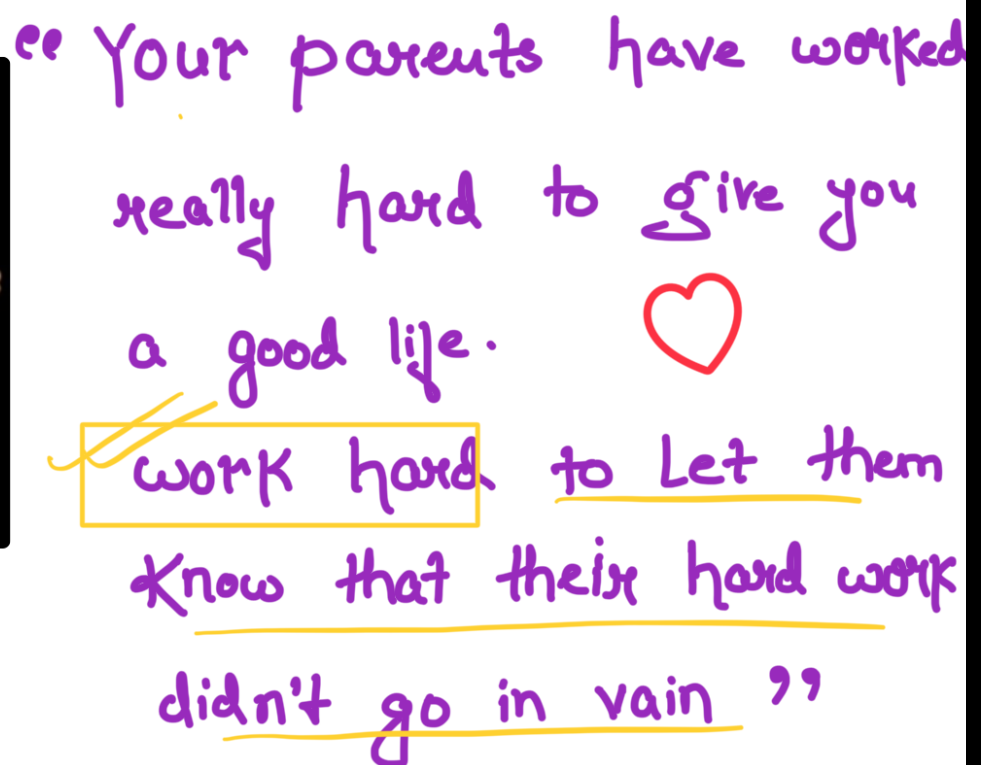 “ Your parents have worked
really hard to give you
a good life.
work hard to Let them
Know that their hard work
didn't go in vain ”